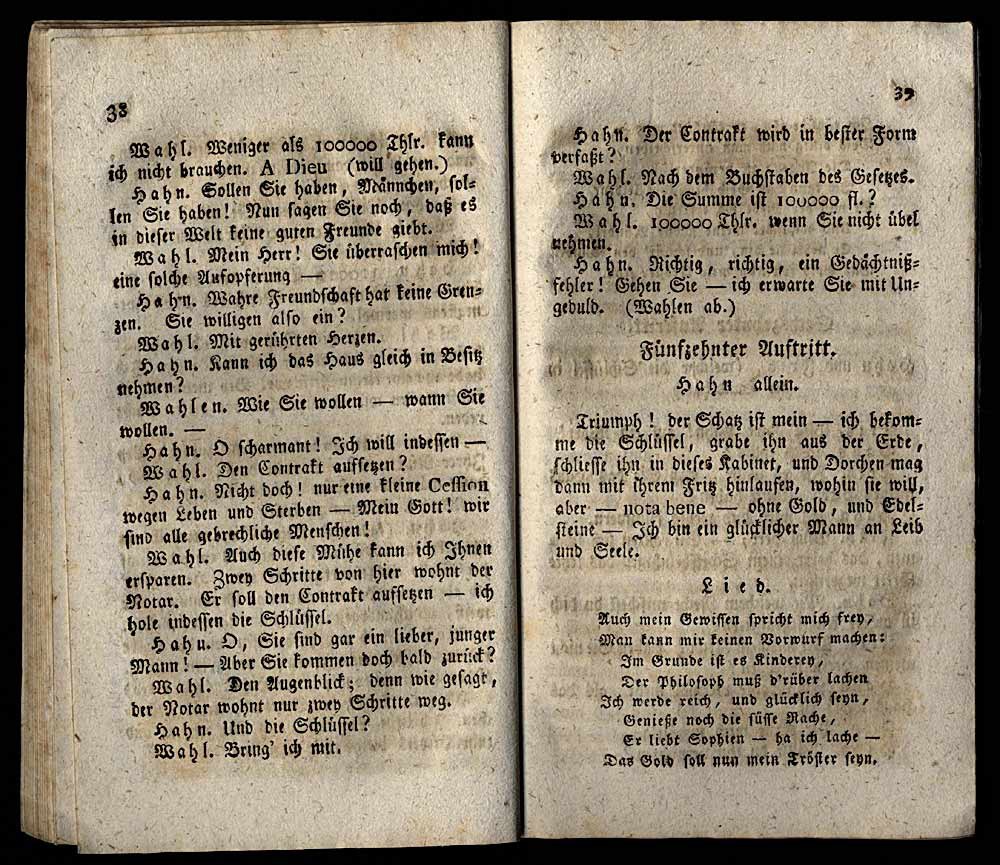 38
Wahl. Weniger als 100000 Thlr. kann
ich nicht brauchen. A Dieu (will gehen.)
Hahn. Sollen Sie haben, Männchen, sol-
len Sie haben! Nun sagen Sie noch, daß es
in dieser Welt keine guten Freunde giebt.
Wahl. Mein Herr! Sie überraschen mich!
eine solche Aufopferung —
Hahn. Wahre Freundschaft hat keine Gren-
zen. Sie willigen also ein?
Wahl. Mit gerührten Herzen.
Hahn. Kann ich das Haus gleich in Besitz
nehmen?
Wahlen. Wie Sie wollen — wann Sie
wollen. —
Hahn. O scharmant! Ich will indessen —
Wahl. Den Contrakt aufsetzen?
Hahn. Nicht doch! nur eine kleine Cession
wegen Leben und Sterben — Mein Gott! wir
sind alle gebrechliche Menschen!
Wahl. Auch diese Mühe kann ich Ihnen
ersparen. Zwey Schritte von hier wohnt der
Notar. Er soll den Contrakt aufsetzen — ich
hole indessen die Schlüssel.
Hahn. O, Sie sind gar ein lieber, junger
Mann! — Aber Sie kommen doch bald zurück?
Wahl. Den Augenblick; denn wie gesagt,
der Notar wohnt nur zwey Schritte weg.
Hahn. Und die Schlüssel?
Wahl. Bring' ich mit.
39
Hahn. Der Contrakt wird in bester Form
verfaßt?
Wahl. Nach dem Buchstaben des Gesetzes.
Hahn. Die Summe ist 100000 fl.?
Wahl. 100000 Thlr. wenn Sie nicht übel
nehmen.
Hahn. Richtig, richtig, ein Gedächtniß-
fehler! Gehen Sie — ich erwarte Sie mit Un-
geduld. (Wahlen ab.)
Fünfzehnter Auftritt.
Hahn allein.
Triumph! der Schatz ist mein — ich bekom-
me die Schlüssel, grabe ihn aus der Erde,
schliesse ihn in dieses Kabinet, und Dorchen mag
dann mit ihrem Fritz hinlaufen, wohin sie will,
aber — nota bene — ohne Gold, und Edel-
steine — Ich bin ein glücklicher Mann an Leib
und Seele.
Lied.
Auch mein Gewissen spricht mich frey,
Man kann mir keinen Vorwurf machen:
Im Grunde ist es Kinderey,
Der Philosoph muß d'rüber lachen
Ich werde reich, und glücklich seyn,
Genieße noch die süsse Rache,
Er liebt Sophien — ha ich lache —
Das Gold soll nun mein Tröster seyn.